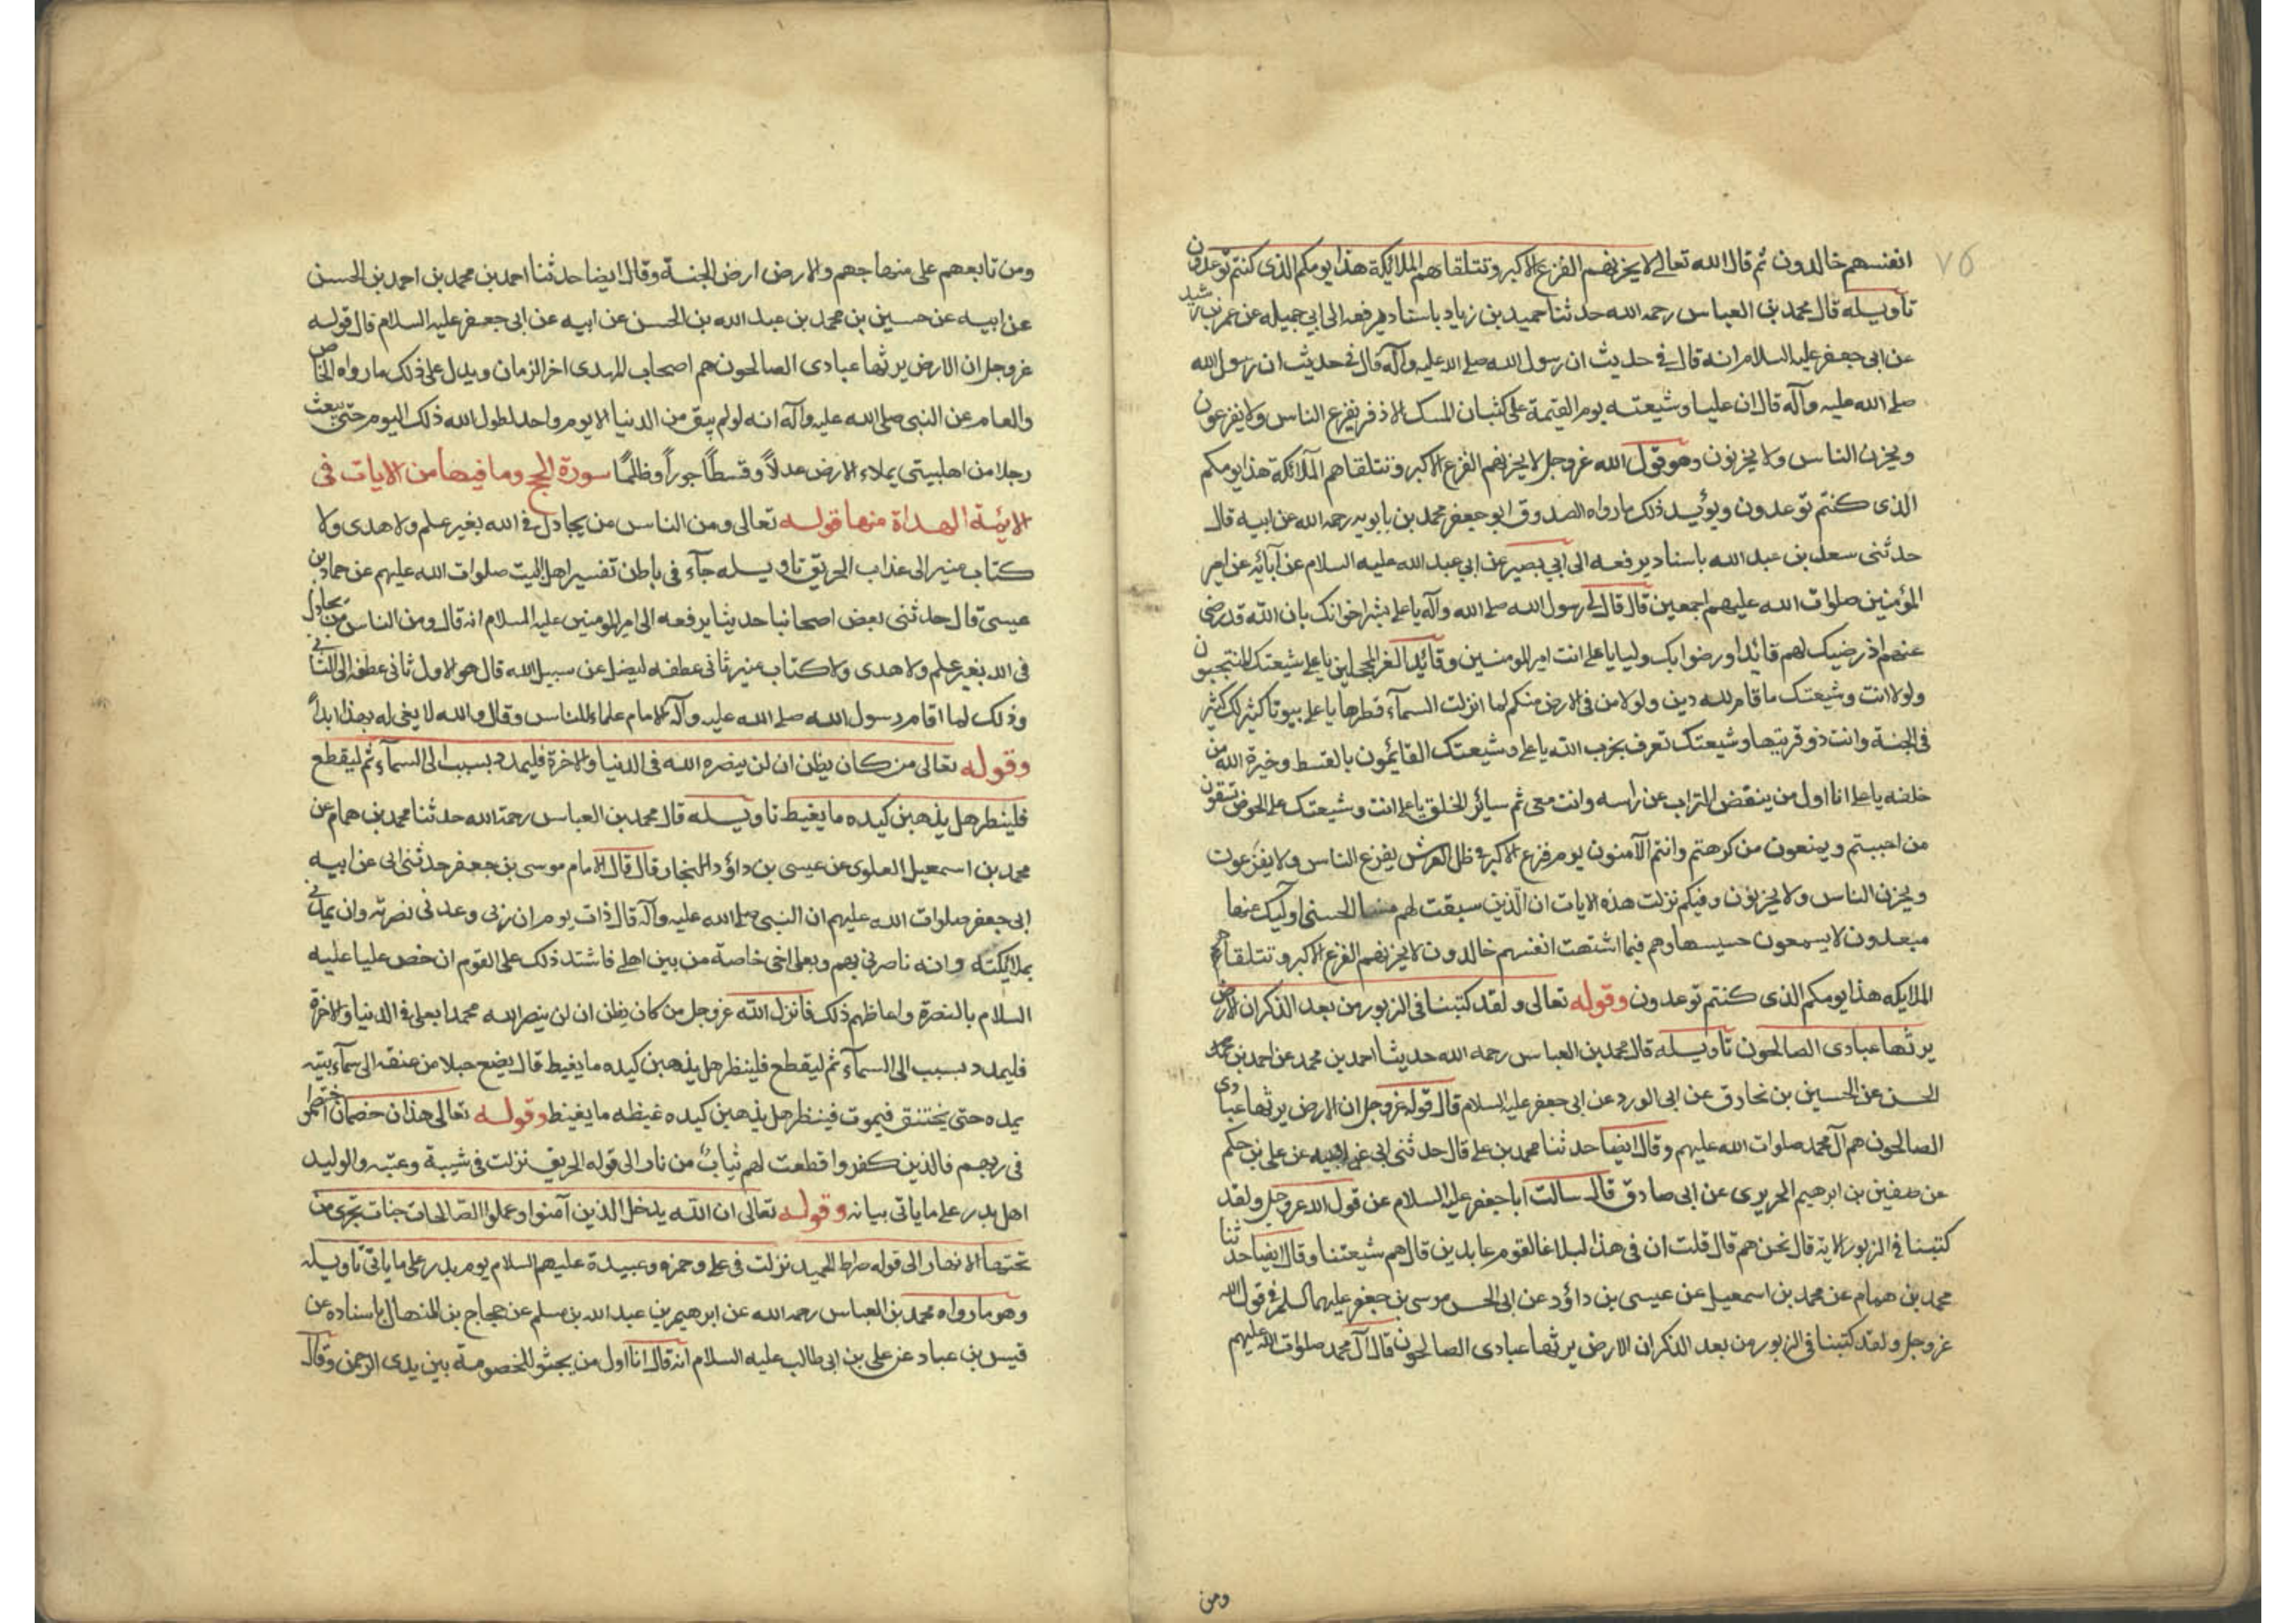 ٧٥
انفسهم خالدون ثم قال الله تعالى لا يحزنهم الفزع الاكبر وتتلقاهم الملائكة هذا يومكم الذى كنتم توعدون
تاويله قال محمد بن العباس رحمه الله حدثنا حميد بن زياد باسناد يرفعه الى ابى جميله عن عمر بن رشيد
عن ابى جعفر عليه السلام انه قال فى حديث ان رسول الله صلى الله عليه وآله قال فى حديث ان رسول الله
صلى الله عليه وآله قال ان عليا وشيعته يوم القيمة على كثبان المسك الاذفر يفزع الناس ولا يفزعون
ويحزن الناس ولا يحزنون وهو قول الله عز وجل لا يحزنهم الفزع الاكبر وتتلقاهم الملائكة هذا يومكم
الذى كنتم توعدون ويؤيد ذلك ما رواه الصدوق ابو جعفر محمد بن بابويه رحمه الله عن ابيه قال
حدثنى سعد بن عبد الله باسناد يرفعه الى ابى بصير عن ابى عبد الله عليه السلام عن آبائه عن امير
المؤمنين صلوات الله عليهم اجمعين قال قال لى رسول الله صلى الله وآله يا على بشر اخوانك بان الله قد رضى
عنهم اذ رضيك لهم قائدا ورضوا بك وليا يا على انت امير المومنين وقائد الغر المحجلين يا على شيعتك المنتجبون
ولولا انت وشيعتك ما قام لله دين ولولا من فى الارض منكم لما انزلت السمآء قطرها يا على بيوتا كثيرلك كثير
فى الجنة وانت ذو قرنيها وشيعتك تعرف بحزب الله يا على وشيعتك القائمون بالقسط وخيرة الله من
خلقه يا على انا اول من ينفض التراب عن راسه وانت معى ثم سائر الخلق يا على انت وشيعتك على الحوض تسقون
من احببتم وتمنعون من كرهتم وانتم الآمنون يوم فزع الاكبر فى ظل العرش يفزع الناس ولا يفزعون
ويحزن الناس ولا يحزنون وفيكم نزلت هذه الايات ان الذين سبقت لهم منا الحسنى اوليك عنها
مبعدون لا يسمعون حسيسها وهم فيما اشتهت انفسهم خالدون لا يحزنهم الفزع الاكبر وتتلقاهم
الملايكه هذا يومكم الذى كنتم توعدون وقوله تعالى ولقد كتبنا فى الزبور من بعد الذكر ان الارض
يرثها عبادى الصالحون تاويله قال محمد بن العباس رحمه الله حديثا احمد بن محمد عن احمد بن محمد
الحسن عن الحسين بن مخارق عن ابى الورد عن ابى جعفر عليه السلام قال قوله عز وجل ان الارض يرثها عبادى
الصالحون هم آل محمد صلوات الله عليهم وقال ايضا حدثنا محمد بن على قال حدثنى ابى عن ابيه عن على بن حكم
عن صفين بن ابرهيم الحريرى عن ابى صادق قال سالت ابا جعفر عليه السلام عن قول الله عز وجل ولقد
كتبنا فى الزبور الاية قال نحن هم قال قلت ان فى هذا لبلاغا لقوم عابدين قال هم شيعتنا وقال ايضا حدثنا
محمد بن همام عن محمد بن اسمعيل عن عيسى بن داؤد عن ابى الحسن موسى بن جعفر عليهما السلم فى قول الله
عز وجل ولقد كتبنا فى الزبور من بعد الذكر ان الارض يرثها عبادى الصالحون قال آل محمد صلوات الله عليهم
ومن
ومن تابعهم على منهاجهم والارض ارض الجنة وقال ايضا حدثنا احمد بن محمد بن احمد بن الحسن
عن ابيه عن حسين بن محمد بن عبد الله بن الحسن عن ابيه عن ابى جعفر عليه السلام قال قوله
عز وجل ان الارض يرثها عبادى الصالحون هم اصحاب المهدى اخر الزمان ويدل على ذلك ما رواه الخاص
والعام عن النبى صلى الله عليه وآله انه لو لم يبق من الدنيا الا يوم واحد لطول الله ذلك اليوم حتى يبعث
رجلا من اهلبيتى يملاء الارض عدلاً وقسطاً جوراً وظلمًا سورة الحج وما فيها من الايات فى
الائمة الهداة منها قوله تعالى ومن الناس من يجادل فى الله بغير علم ولا هدى ولا
كتاب منير الى عذاب الحريق تاويله جآء فى باطن تفسير اهل البيت صلوات الله عليهم عن حماد بن
عيسى قال حدثنى بعض اصحابنا حديثا يرفعه الى امير المومنين عليه السلام انه قال ومن الناس من يجادل
فى الله بغير علم ولا هدى ولا كتاب منير ثانى عطفه ليضل عن سبيل الله قال هو الاول ثانى عطفه الى الثانى
وذلك لما اقام رسول الله صلى الله عليه وآله الامام علماء للناس وقال والله لا يفى له بهذا ابداً
وقوله تعالى من كان يظن ان لن ينصره الله فى الدنيا والاخرة فليمدد بسبب الى السمآء ثم ليقطع
فلينظر هل يذهبن كيده ما يغيظ تاويله قال محمد بن العباس رحمة الله حدثنا محمد بن همام عن
محمد بن اسمعيل العلوى عن عيسى بن داؤد النجار قال قال الامام موسى بن جعفر حدثنى ابى عن ابيه
ابى جعفر صلوات الله عليهم ان النبى صلى الله عليه وآله قال ذات يوم ان ربى وعدنى نصرته وان يمدنى
بملايكته وانه ناصرنى بهم وبعلى اخى خاصة من بين اهلى فاشتد ذلك على القوم ان خص عليا عليه
السلام بالنصرة واغاظهم ذلك فانزل الله عز وجل من كان يظن ان لن ينصر الله محمدا بعلى فى الدنيا والاخرة
فليمدد بسبب الى السمآء ثم ليقطع فلينظر هل يذهبن كيده ما يغيظ قال يضع حبلا من عنقه الى سمآء بيته
يمده حتى يختنق فيموت فينظر هل يذهبن كيده غيظه ما يغيظ وقوله تعالى هذان خصمان اختصموا
فى ربهم فالذين كفروا قطعت لهم ثيابٌ من نار الى قوله الحريق نزلت فى شيبة وعتبه والوليد
اهل بدر على ما ياتى بيانه وقوله تعالى ان الله يدخل الذين آمنوا وعملوا الصالحات جنات تجرى من
تحتها الانهار الى قوله صراط الحميد نزلت فى على وحمزه وعبيدة عليهم السلام يوم بدر على ما ياتى تاويله
وهو ما رواه محمد بن العباس رحمه الله عن ابرهيم بن عبد الله بن مسلم عن حجاج بن المنهال باسناده عن
قيس بن عباد عن على بن ابى طالب عليه السلام انه قال انا اول من يجثو للخصومة بين يدى الرحمن وقال